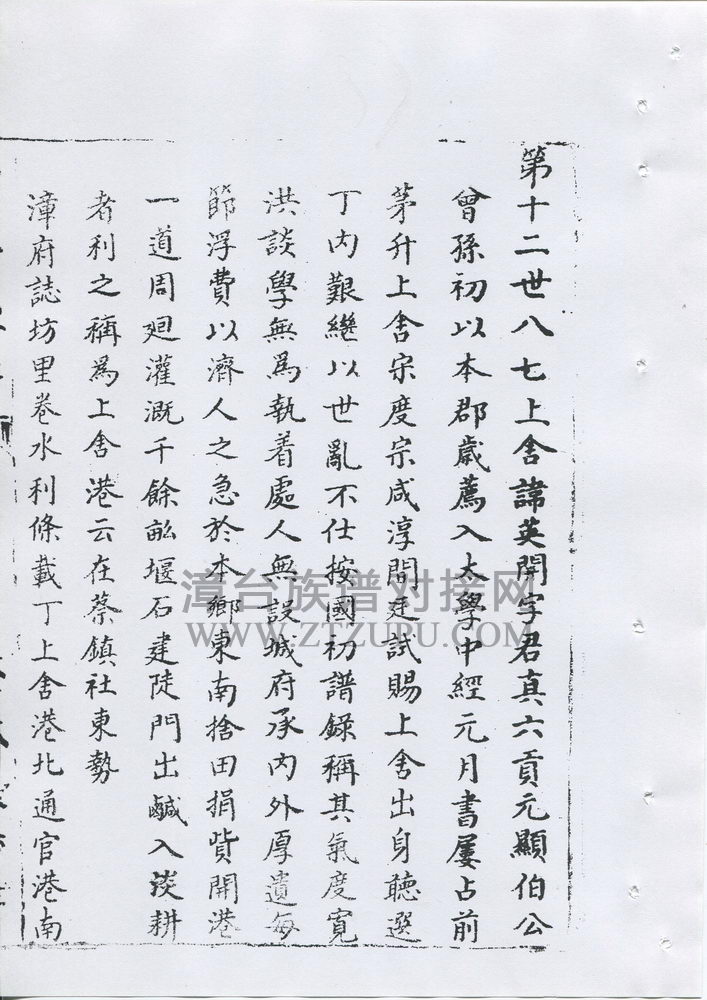 第十二世八七上舍諱英開字君真六貢元顯伯公
曾孫初以本郡歲薦入太學中經元月書屢占前
茅升上舍宋度宗咸淳間廷試賜上舍出身聽選
丁內艱繼以世亂不仕按國初譜錄稱其氣度寬
洪談學無為執着處人無設城府承內外厚遺每
節浮費以濟人之急於本鄉東南捨田捐貲開港
一道周廻灌溉千餘畝堰石建陡門出鹹入淡耕
者利之稱為上舍港云在蔡鎮社東勢
漳府誌坊里卷水利條載丁上舍港北通官港南
漳台族谱对接网
WWW.ZTZUPU.COM